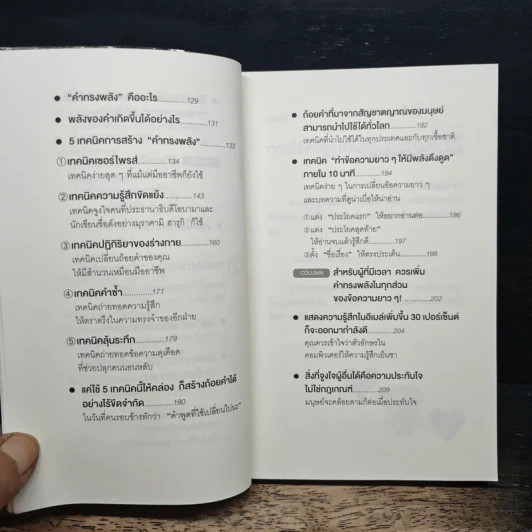 ● "คำทรงพลัง" คืออะไร..............129
● พลังของคำเกิดขึ้นได้อย่างไร..............131
● 5 เทคนิคการสร้าง "คำทรงพลัง"..............133
①เทคนิคเซอร์ไพรส์..............134
เทคนิคง่ายสุด ๆ ที่แม้แต่มืออาชีพก็ยังใช้
②เทคนิคความรู้สึกขัดแย้ง..............143
เทคนิคจูงใจคนที่ประธานาธิบดีโอบามาและ
นักเขียนชื่อดังอย่างมุราคามิ ฮารุกิ ก็ใช้
③เทคนิคปฏิกิริยาของร่างกาย..............160
เทคนิคเปลี่ยนถ้อยคำของคุณ
ให้มีสีสันเหมือนมืออาชีพ
④เทคนิคคำซ้ำ..............171
เทคนิคถ่ายทอดความรู้สึก
ให้ตราตรึงในความทรงจำของอีกฝ่าย
⑤เทคนิคลุ้นระทึก..............179
เทคนิคถ่ายทอดข้อความดุเดือด
ที่ช่วยปลุกคนนอนหลับ
● แค่ใช้ 5 เทคนิคนี้ให้คล่อง ก็สร้างถ้อยคำได้
อย่างไร้ขีดจำกัด..............190
ในวันที่คนรอบข้างทักว่า "คำพูดที่ใช้เปลี่ยนไปนะ"
● ถ้อยคำที่มาจากสัญชาตญาณของมนุษย์
สามารถนำไปใช้ได้ทั่วโลก..............192
เทคนิคที่นำไปใช้ได้ในทุกประเทศและกับทุกเชื้อชาติ
● เทคนิค "ทำข้อความยาว ๆ ให้มีพลังดึงดูด"
ภายใน 10 นาที..............194
เทคนิคง่าย ๆ ในการเปลี่ยนข้อความยาว ๆ
และบทความที่ดูน่าเบื่อให้น่าอ่าน
①แต่ง "ประโยคแรก" ให้อยากอ่านต่อ..............196
②แต่ง "ประโยคสุดท้าย"
ให้อ่านจบแล้วรู้สึกดี..............197
③ตั้ง "ชื่อเรื่อง" ให้ตรงประเด็น..............198
COLUMN สำหรับผู้ที่มีเวลา ควรเพิ่ม
คำทรงพลังในทุกส่วน
ของข้อความยาว ๆ!..............202
● แสดงความรู้สึกในอีเมล์เพิ่มขึ้น 30 เปอร์เซ็นต์
ก็จะออกมากำลังดี..............204
คุณควรเข้าใจว่าตัวอักษรใน
คอมพิวเตอร์ให้ความรู้สึกเย็นชา
● สิ่งที่จูงใจผู้อื่นได้คือความประทับใจ
ไม่ใช่กฎเกณฑ์..............209
มนุษย์จะคล้อยตามก็ต่อเมื่อประทับใจ